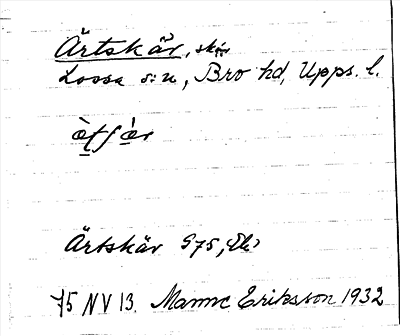 Ärtskär, skär
Lossa s:n, Bro hd, Upps. l.
Ärtskär 975, Ek.
75 NV 13. Manne Eriksson 1932